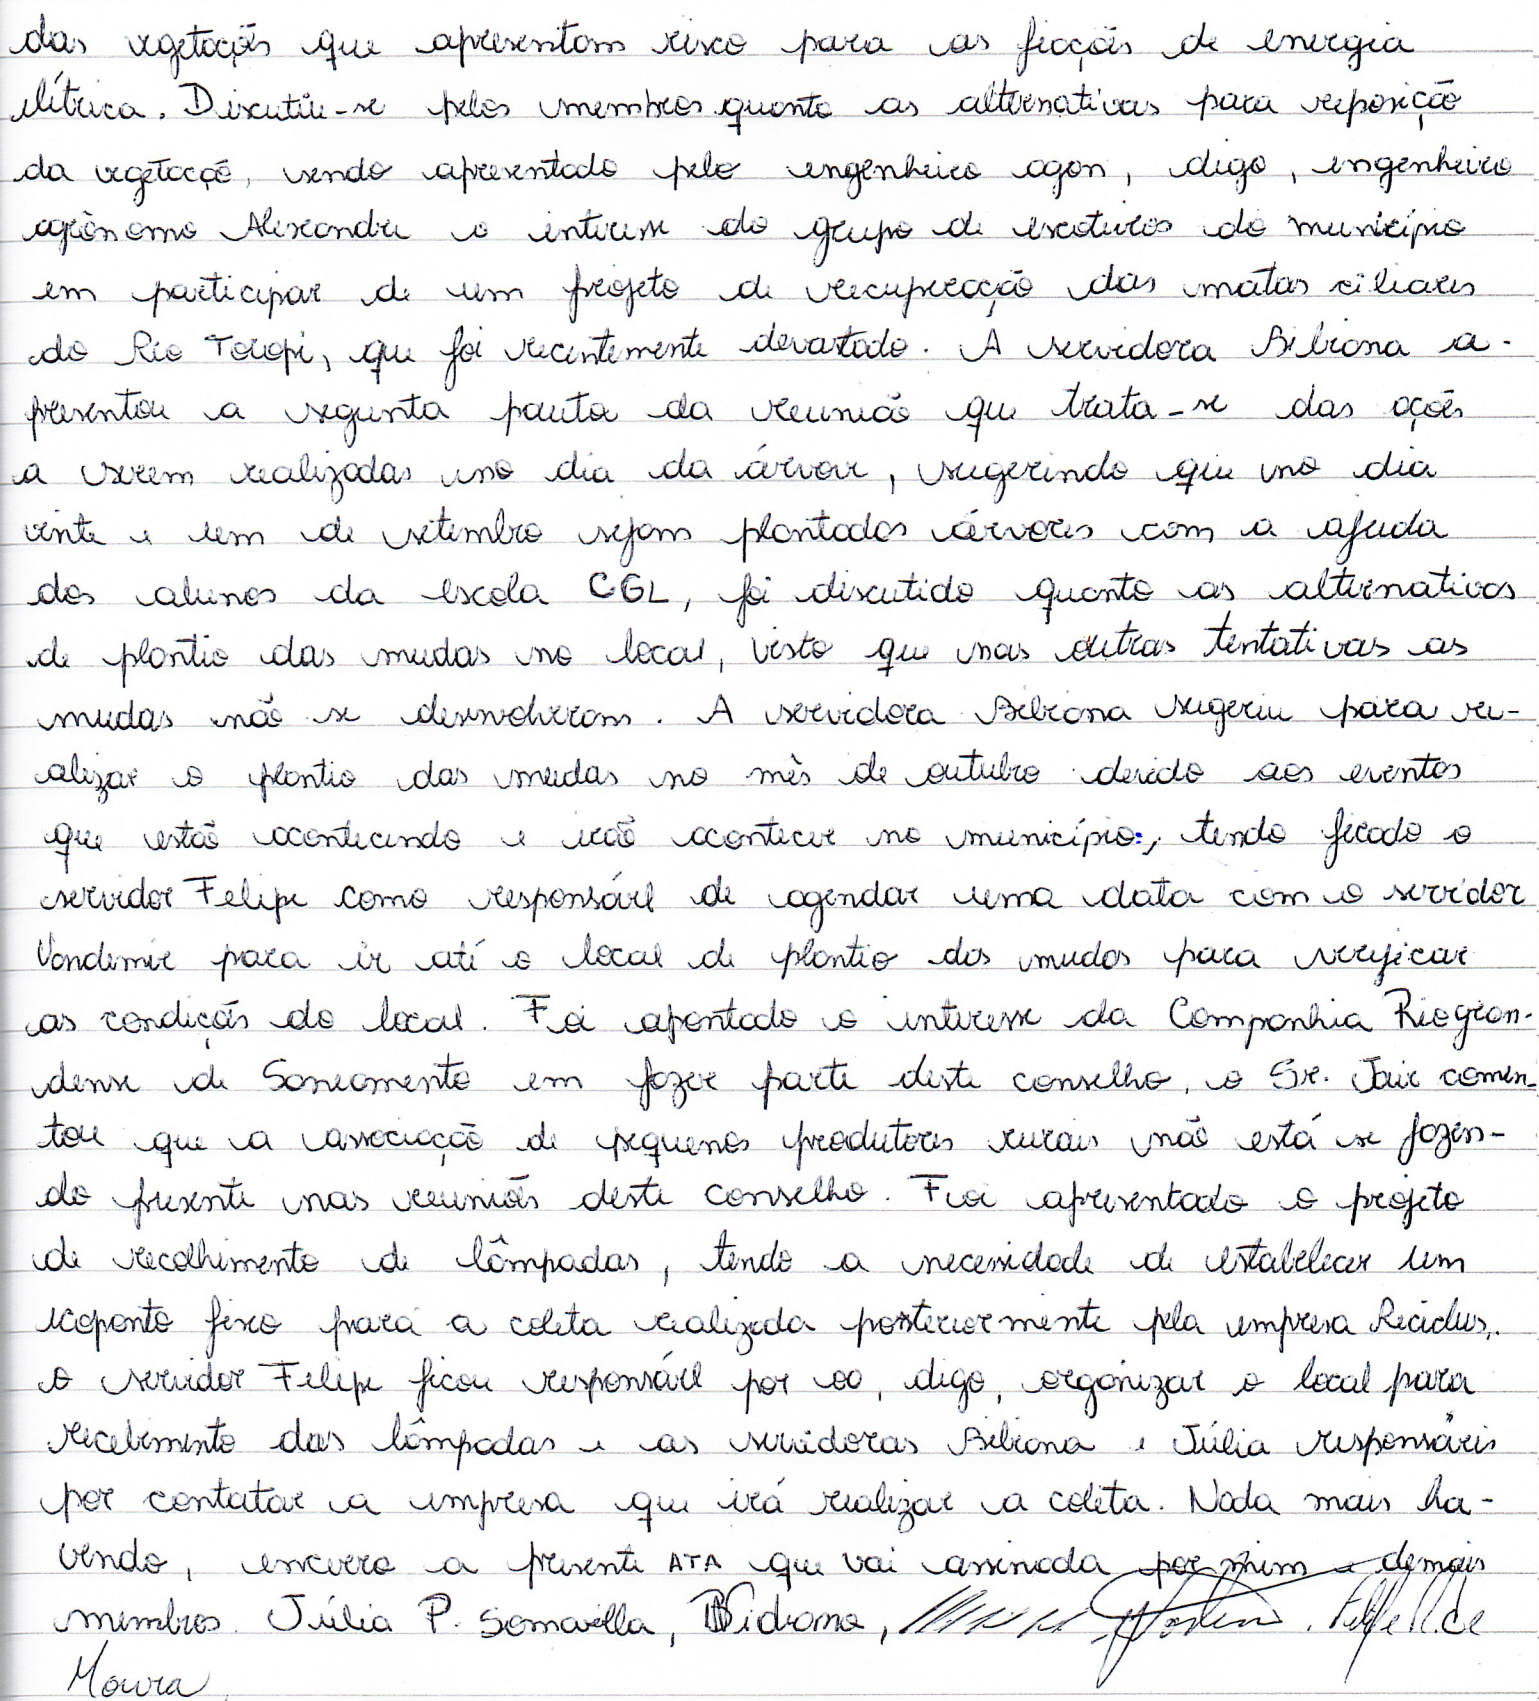 das vegetações que apresentam risco para as fiações de energia
elétrica. Discutiu-se pelos membros quanto as alternativas para reposição
da vegetação, sendo apresentado pelo engenheiro agon, digo, engenheiro
agrônomo Alexandre o interesse do grupo de escoteiros do município
em participar de um projeto de recuperação das matas ciliares
do Rio Toropi, que foi recentemente devastado. A servidora Bibiana a-
presentou a segunta pauta da reunião que trata-se das ações
a serem realizadas no dia da árvore, sugerindo que no dia
vinte e um de setembro sejam plantados árvores com a ajuda
dos alunos da escola CGL, foi discutido quanto as alternativas
de plantio das mudas no local, visto que nas outras tentativas as
mudas não se desenvolveram. A servidora Bibiana sugeriu para re-
alizar o plantio das mudas no mês de outubro devido aos eventos
que estão acontecendo e irão acontecer no município, tendo ficado o
servidor Felipe como responsável de agendar uma data com o servidor
Vandemir para ir até o local de plantio das mudas para verificar
as condições do local. Foi apontado o interesse da Companhia Riogran-
dense de Saneamento em fazer parte deste conselho, o Sr. Jair comen-
tou que a associação de pequenos produtores rurais não está se fazen-
do presente nas reuniões deste conselho. Foi apresentado o projeto
de recolhimento de lâmpadas, tendo a necessidade de estabelecer um
ecoponto fixo para a coleta realizada posteriormente pela empresa Reciclus,.
o servidor Felipe ficou responsável por oo, digo, organizar o local para
recebimento das lâmpadas e as servidoras Bibiana e Júlia responsáveis
por contatar a empresa que irá realizar a coleta. Nada mais ha-
vendo, encerro a presente ATA que vai assinada por mim e demais
membros. Júlia P. Somavilla, Felipe R. de
Moura,